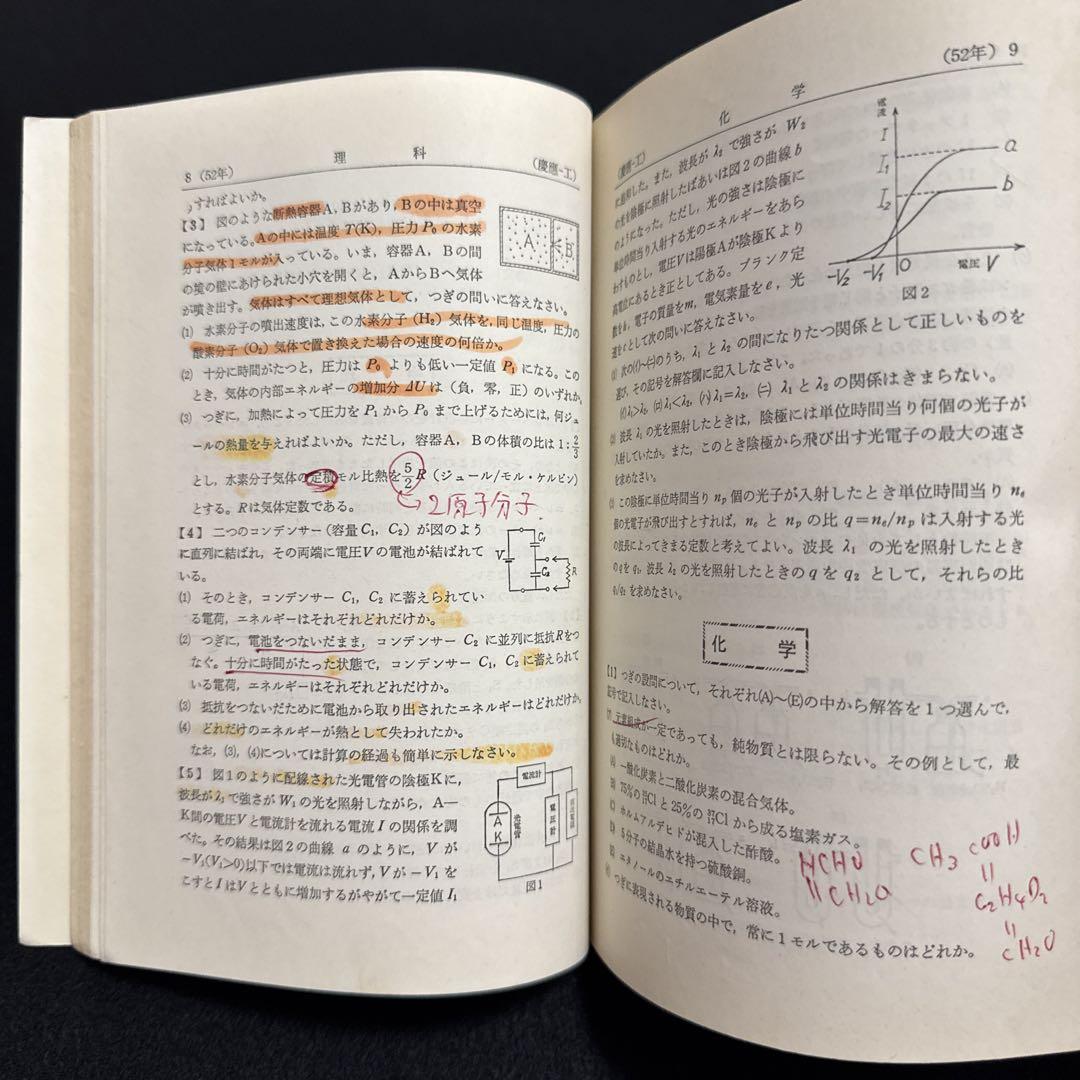 8 (52年)
理科
(慶應-工)
うすればよいか。
【3】 図のような断熱容器A, Bがあり, Bの中は真空
になっている。Aの中には温度 T(K), 圧力 P₀ の水素
分子気体1モルが入っている。いま, 容器A, Bの間
の境の壁にあけられた小穴を開くと, AからBへ気体
が噴き出す。気体はすべて理想気体として, つぎの問いに答えなさい。
(1) 水素分子の噴出速度は, この水素分子(H₂)気体を, 同じ温度, 圧力の
酸素分子(O₂)気体で置き換えた場合の速度の何倍か。
(2) 十分に時間がたつと, 圧力は P₀ よりも低い一定値 P₁ になる。この
とき, 気体の内部エネルギーの増加分 ΔU は(負, 零, 正)のいずれか。
(3) つぎに, 加熱によって圧力を P₁ から P₀ まで上げるためには, 何ジュ
ールの熱量を与えればよいか。ただし, 容器A, Bの体積の比は 1:2/3
とし, 水素分子気体の定積モル比熱を 5/2 R (ジュール/モル・ケルビン)
とする。Rは気体定数である。
2原子分子
A
B
【4】 二つのコンデンサー(容量 C₁, C₂)が図のよう
に直列に結ばれ, その両端に電圧Vの電池が結ばれて
いる。
(1) そのとき, コンデンサー C₁, C₂ に蓄えられてい
る電荷, エネルギーはそれぞれどれだけか。
(2) つぎに, 電池をつないだまま, コンデンサー C₂ に並列に抵抗Rをつ
なぐ。十分に時間がたった状態で, コンデンサー C₁, C₂ に蓄えられて
いる電荷, エネルギーはそれぞれどれだけか。
(3) 抵抗をつないだために電池から取り出されたエネルギーはどれだけか。
(4) どれだけのエネルギーが熱として失われたか。
なお, (3), (4)については計算の経過も簡単に示しなさい。
V
C₁
C₂
R
【5】 図1のように配線された光電管の陰極Kに,
波長がλ₁で強さがW₁の光を照射しながら, A―
K間の電圧Vと電流計を流れる電流Iの関係を調
べた。その結果は図2の曲線 a のように, V が
−V₁(V₁>0)以下では電流は流れず, V が −V₁ を
こすと I は V とともに増加するがやがて一定値 I₁
電流計
光電管
A
K
電圧計
図1
(52年) 9
化学
(慶應-工)
に達した。また, 波長が λ₂ で強さが W₂
の光を陰極に照射したばあいは図2の曲線 b
のようになった。ただし, 光の強さは陰極に
単位時間当り入射する光のエネルギーをあら
わすものとし, 電圧Vは陽極Aが陰極Kより
高電位にあるとき正としてある。プランク定
数をh, 電子の質量をm, 電気素量をe, 光
速をcとして次の問いに答えなさい。
電流
I
I₁
I₂
a
b
−V₂
−V₁
O
電圧 V
図2
次の(イ)〜(ニ)のうち, λ₁ と λ₂ の間になりたつ関係として正しいものを
選び, その記号を解答欄に記入しなさい。
(イ) λ₁>λ₂, (ロ) λ₁<λ₂, (ハ) λ₁=λ₂, (ニ) λ₁ と λ₂ の関係はきまらない。
波長 λ₁ の光を照射したときは, 陰極には単位時間当り何個の光子が
入射していたか。また, このとき陰極から飛び出す光電子の最大の速さ
を求めなさい。
この陰極に単位時間当り nₚ 個の光子が入射したとき単位時間当り nₑ
個の光電子が飛び出すとすれば, nₑ と nₚ の比 q=nₑ/nₚ は入射する光
の波長によってきまる定数と考えてよい。波長 λ₁ の光を照射したとき
のqを q₁, 波長 λ₂ の光を照射したときの q を q₂ として, それらの比
q₁/q₂ を求めなさい。
化学
【1】 つぎの設問について, それぞれ(A)〜(E)の中から解答を1つ選んで,
記号で記入しなさい。
(ア) 元素組成が一定であっても, 純物質とは限らない。その例として, 最
も適切なものはどれか。
(A) 一酸化炭素と二酸化炭素の混合気体。
(B) 75%の ³⁵₁₇Cl と 25%の ³⁷₁₇Cl から成る塩素ガス。
(C) ホルムアルデヒドが混入した酢酸。
(D) 5分子の結晶水を持つ硫酸銅。
(E) エタノールのエチルエーテル溶液。
つぎに表現される物質の中で, 常に1モルであるものはどれか。
HCHO
〃
CH₂O
CH₃COOH
〃
C₂H₄O₂
〃
CH₂O